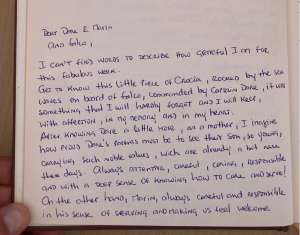 Dear Dare & Marin
and folks,
I can't find words to describe how grateful I am for
this fabulous week.
Get to know this little piece of Croatia, rocked by the sea
waves on board of folks, commanded by Captain Dare, it was
something that I will hardly forget and I will keep,
with affection, in my memory and in my heart.
After knowing Dare a little more, as a mother, I imagine
how proud Dare's parents must be to see their son, so young,
carrying such noble values, wich are already a bit
these days. Always attentive, careful, caring, responsible
and with a deep sense of knowing how to care and serve!
On the other hand, Marin, always careful and responsible
in his sense of serving and making us feel welcome